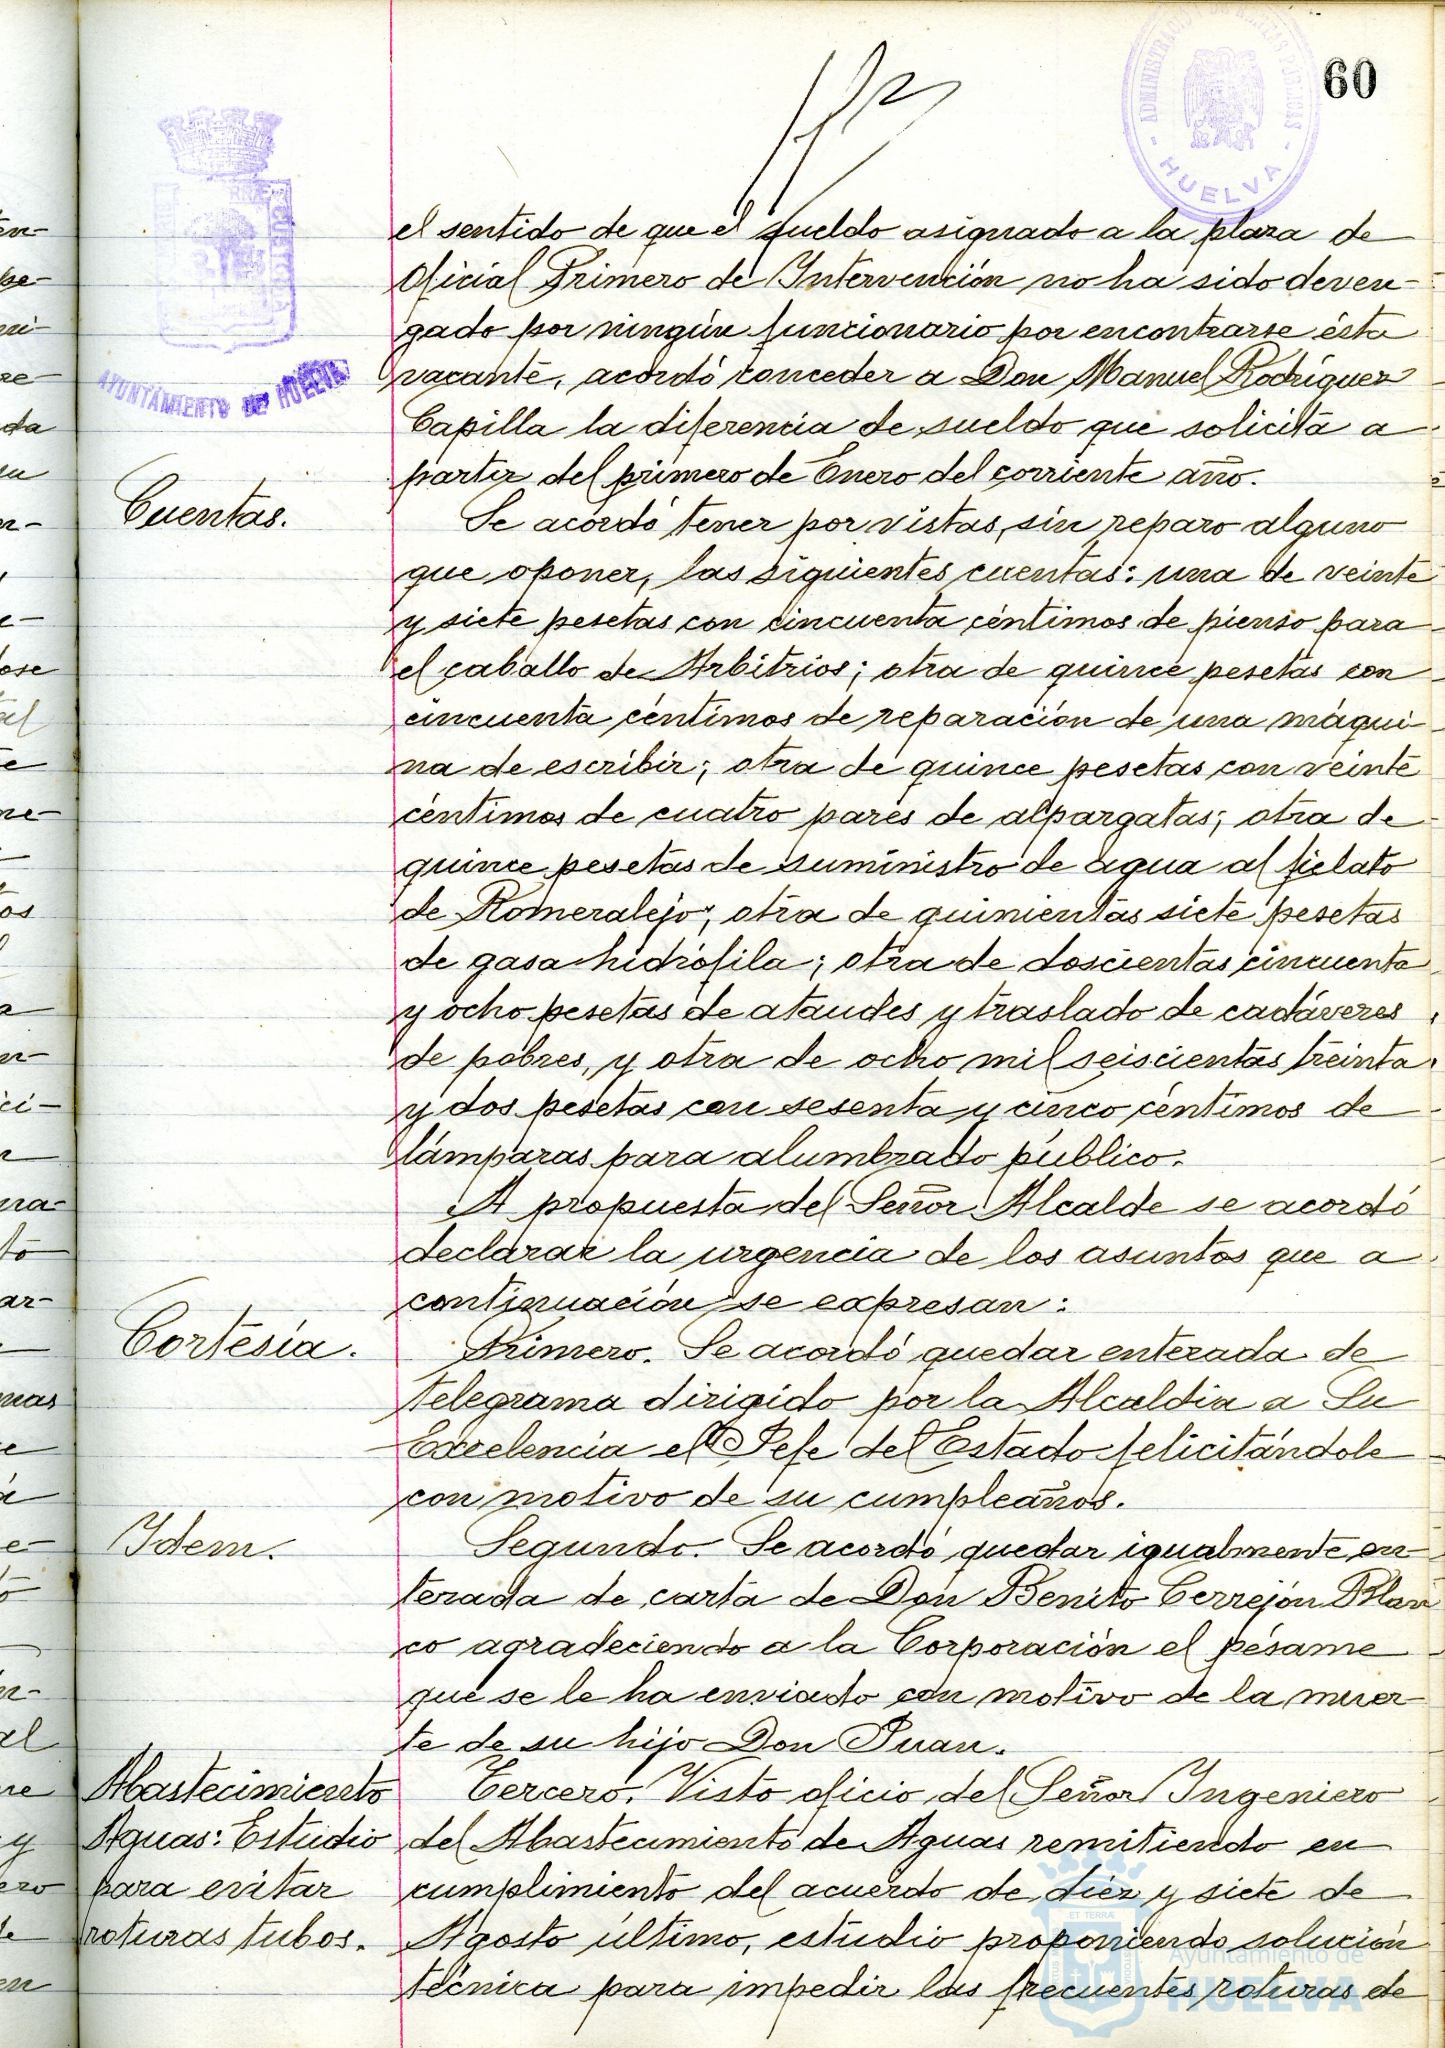 60
ADMINISTRACIÓN DE RENTAS PUBLICAS
- HUELVA -
AYUNTAMIENTO DE HUELVA
el sentido de que el sueldo asignado a la plaza de
Oficial Primero de Intervención no ha sido deven-
gado por ningún funcionario por encontrarse ésta
vacante, acordó conceder a Don Manuel Rodríguez
Capilla la diferencia de sueldo que solicita a
partir del primero de Enero del corriente año.
Cuentas.
Se acordó tener por vistas, sin reparo alguno
que oponer, las siguientes cuentas: una de veinte
y siete pesetas con cincuenta céntimos de pienso para
el caballo de Arbitrios; otra de quince pesetas con
cincuenta céntimos de reparación de una máqui-
na de escribir; otra de quince pesetas con veinte
céntimos de cuatro pares de alpargatas; otra de
quince pesetas de suministro de agua al fielato
de Romeralejo; otra de quinientas siete pesetas
de gasa hidrófila; otra de doscientas cincuenta
y ocho pesetas de ataudes y traslado de cadáveres
de pobres, y otra de ocho mil seiscientas treinta
y dos pesetas con sesenta y cinco céntimos de
lámparas para alumbrado público.
A propuesta del Señor Alcalde se acordó
declarar la urgencia de los asuntos que a
continuación se expresan:
Cortesía.
Primero. Se acordó quedar enterada de
telegrama dirigido por la Alcaldia a Su
Excelencia el Jefe del Estado felicitándole
con motivo de su cumpleaños.
Idem.
Segundo. Se acordó quedar igualmente en-
terada de carta de Don Benito Cerrejón Blan
co agradeciendo a la Corporación el pésame
que se le ha enviado con motivo de la muer-
te de su hijo Don Juan.
Abastecimiento
Aguas: Estudio
para evitar
roturas tubos.
Tercero. Visto oficio del Señor Ingeniero
del Abastecimiento de Aguas remitiendo en
cumplimiento del acuerdo de diez y siete de
Agosto último, estudio proponiendo solución
técnica para impedir las frecuentes roturas de
Ayuntamiento de
HUELVA